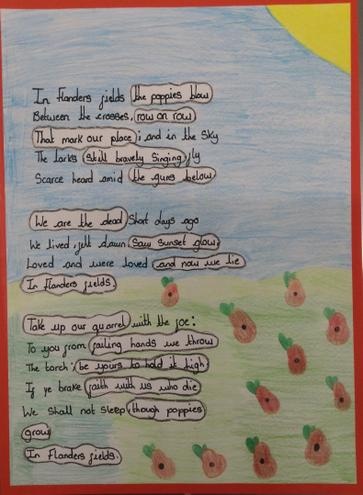 In Flanders fields the poppies blow
Between the crosses, row on row
That mark our place; and in the sky
The larks still bravely singing fly
Scarce heard amid the guns below
We are the dead Short days ago
We lived, felt dawn, Saw sunset glow
Loved and were loved and now we lie
In Flanders fields.
Take up our quarrel with the foe:
To you from failing hands we throw
The torch: be yours to hold it high
If ye brake faith with us who die
We Shall not Sleep, though poppies
grow
In Flanders fields.